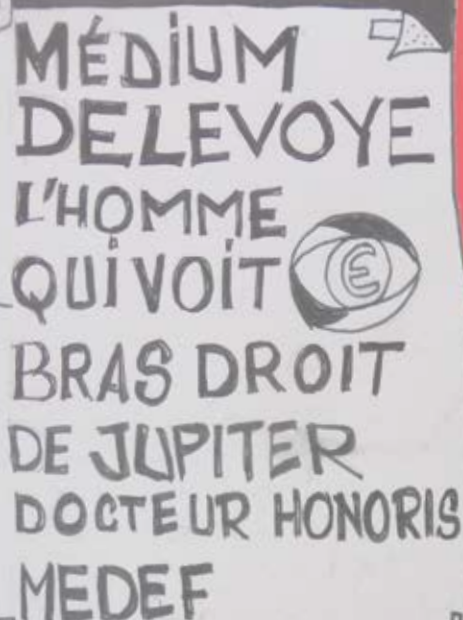 MÉDiUM
DELEVOYE
L'HOMME
QUi VOiT €
BRAS DROIT
DE JUPITER
DOCTEUR HONORIS
MEDEF